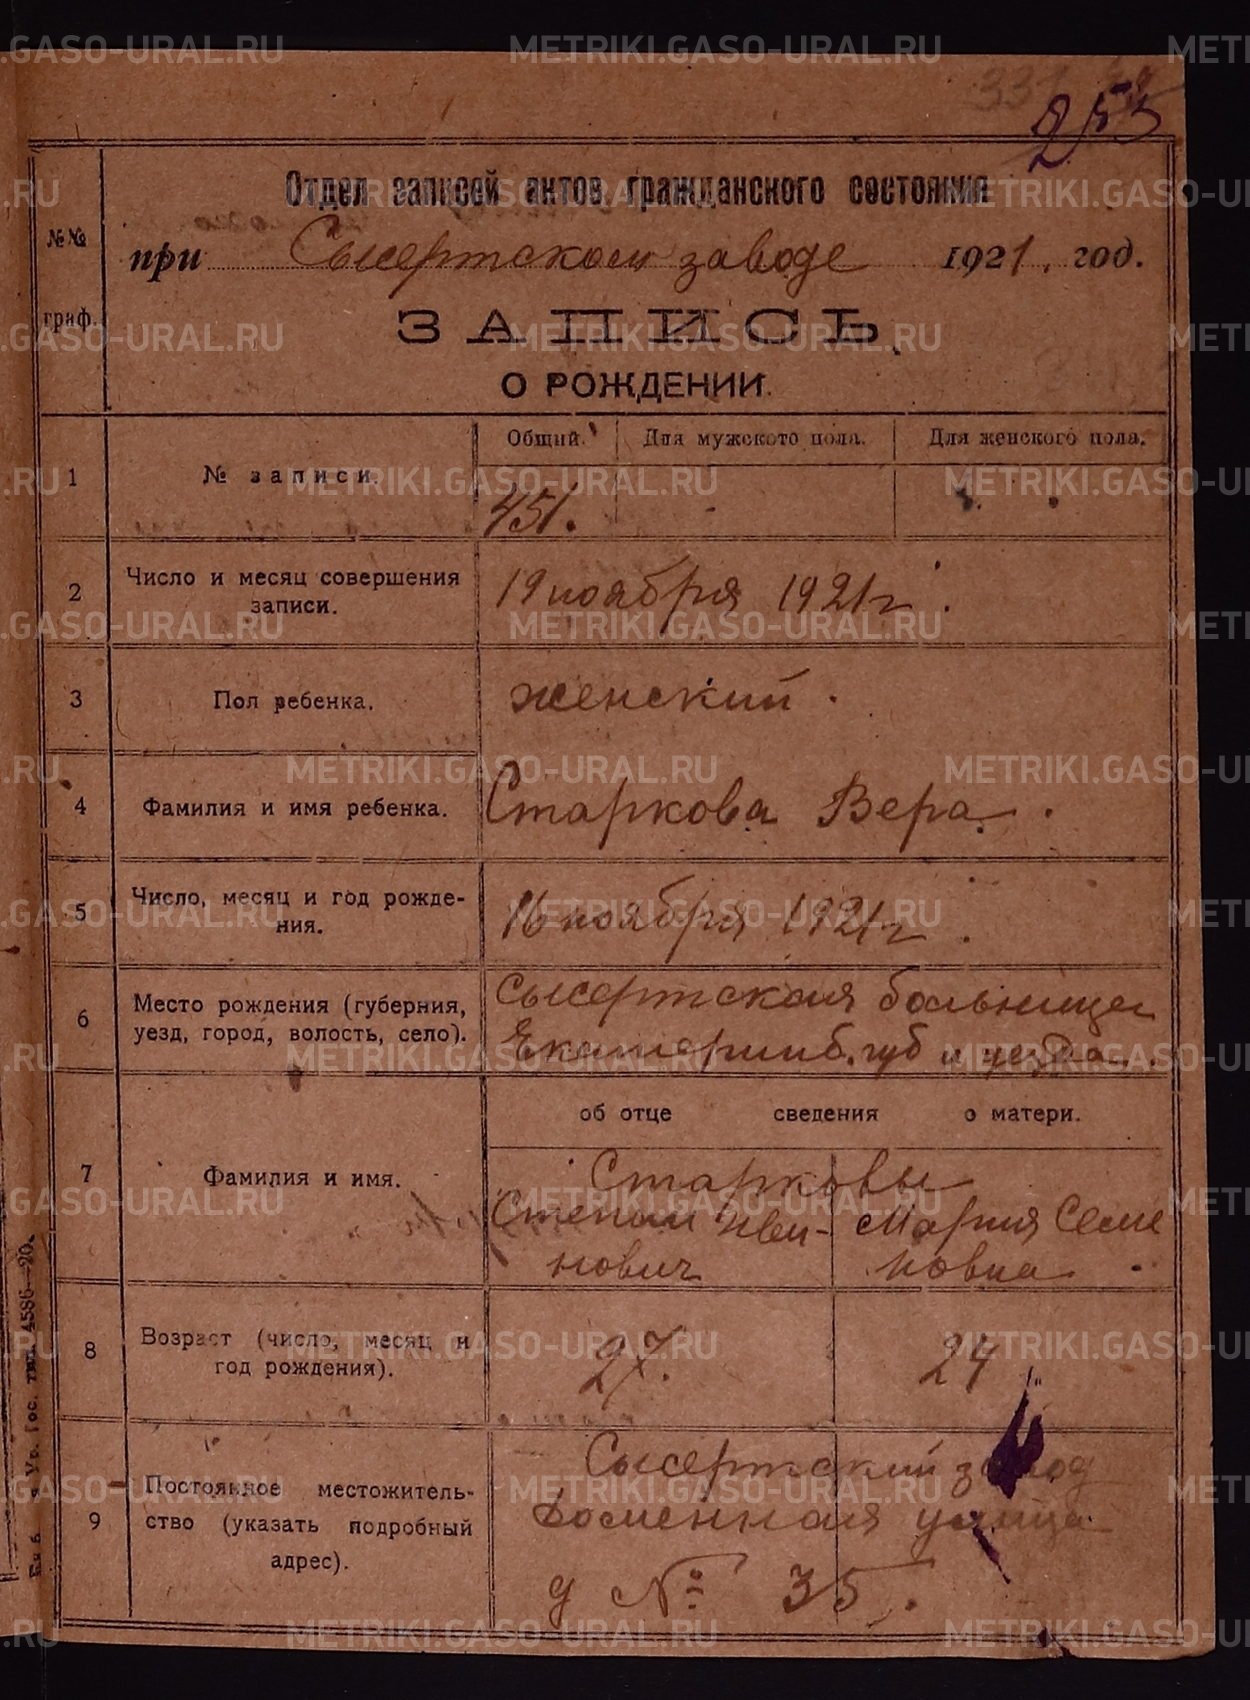 253
Отдел записей актов гражданского состояния
№№ граф.
при Сысертском заводе 1921 год.
ЗАПИСЬ
О РОЖДЕНИИ.
Общий. Для мужского пола. Для женского пола.
1 № записи. 451.
2 Число и месяц совершения записи. 19 ноября 1921 г.
3 Пол ребенка. женский.
4 Фамилия и имя ребенка. Старкова Вера.
5 Число, месяц и год рожде-
ния. 16 ноября 1921 г.
6 Место рождения (губерния, Сысертская больница
уезд, город, волость, село). Екатеринб. губ и уезда.
об отце сведения о матери.
7 Фамилия и имя. Старковы
Степан Ива- Мария Семе
нович новна
8 Возраст (число, месяц и
год рождения). 27. 24
9 Постоянное местожитель- Сысертский завод
ство (указать подробный Доменная улица
адрес). д № 35.
Ур. Гос. тип. 4586—20.
METRIKI.GASO-URAL.RU